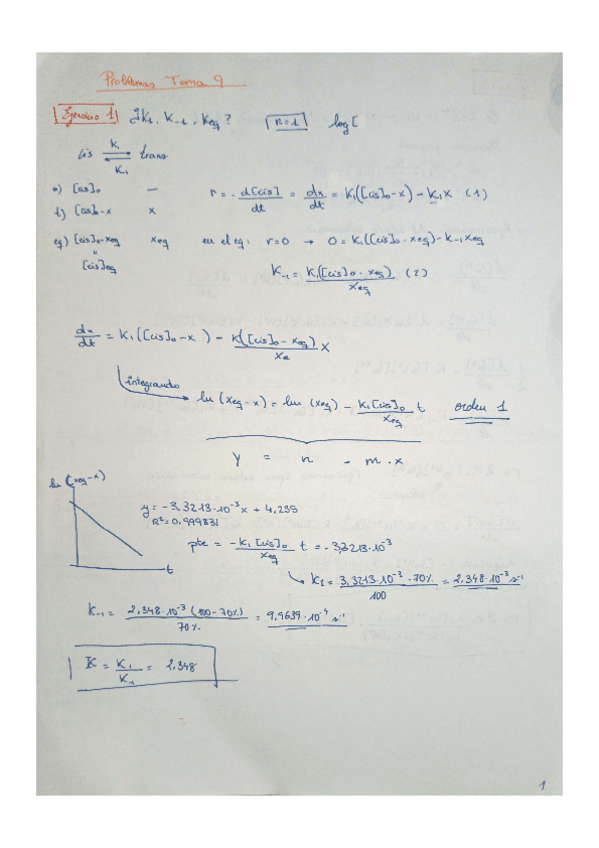 Problemas Tema 9
Ejercicio 1 ¿K1, K-1, Keq? n=1 log[
cis ⇌ trans
K1
K-1
0) [cis]0 — r = - d[cis]/dt = dx/dt = K1([cis]0-x) - K-1x (1)
t) [cis]0-x x
eq) [cis]0-xeq xeq en el eq: r=0 → 0 = K1([cis]0-xeq) - K-1xeq
=
[cis]eq
K-1 = K1([cis]0-xeq)/xeq (2)
dx/dt = K1([cis]0-x) - K([cis]0-xeq)/xe x
integrando
ln(xeq-x) = ln(xeq) - K1[cis]0/xeq t orden 1
y = n - m·x
ln(xeq-x)
t
y = -3,3213·10⁻³x + 4,235
R² = 0,999831
pte = -K1[cis]0/xeq t = -3,3213·10⁻³
K1 = 3,3213·10⁻³·70%/100 = 2,348·10⁻³ s⁻¹
K-1 = 2,348·10⁻³(100-70%)/70% = 9,9639·10⁻⁴ s⁻¹
K = K1/K-1 = 2,348
1